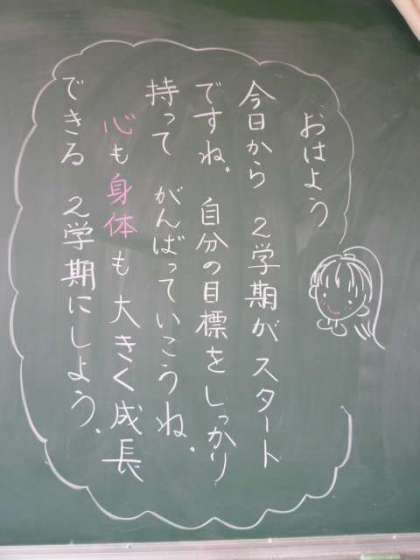 おはよう
今日から 2学期がスタート
ですね。自分の目標をしっかり
持って がんばっていこうね。
心も身体も大きく成長
できる 2学期にしよう。